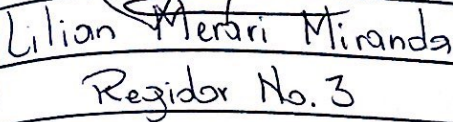 Lilian Merari Miranda
Regidor No. 3